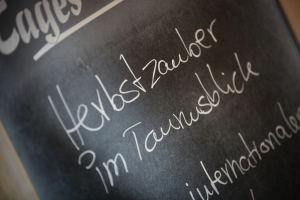 Tages
Herbstzauber
im Taunusblick
internationale